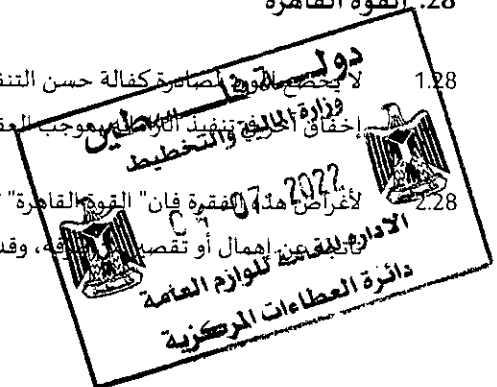 28. القوة القاهرة
1.28 لا يخضع المورد لمصادرة كفالة حسن التنف
إخفاق آخر في تنفيذ التزاماته بموجب العق
2.28 لأغراض هذه الفقرة فإن "القوة القاهرة"
ناتجة عن إهمال أو تقصير من طرفه، وقد
دولــة فلــسطين
وزارة المالية والتخطيط
07- 2022
الادارة العامة للوازم العامة
دائرة العطاءات المركزية